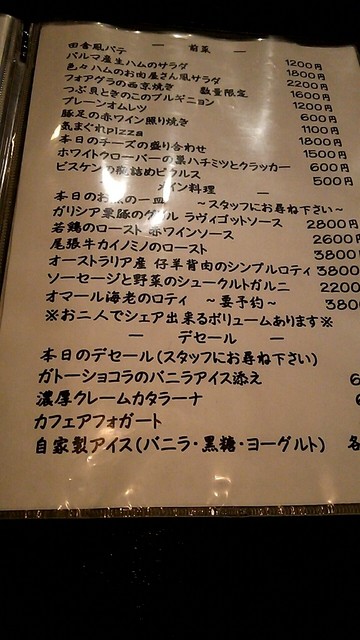 ― 前菜 ―
田舎風パテ 1200円
パルマ産生ハムのサラダ 1800円
色々ハムのお肉屋さん風サラダ 2200円
フォアグラの西京焼き 数量限定 1600円
つぶ貝ときのこのブルギニョン 1200円
プレーンオムレツ 600円
豚足の赤ワイン照り焼き 1100円
気まぐれpizza 1800円
本日のチーズの盛り合わせ 1500円
ホワイトクローバーの巣ハチミツとクラッカー 600円
ビスケンの瓶詰めピクルス 500円
メイン料理 ―
本日のお魚の一皿 ~スタッフにお尋ね下さい~
ガリシア栗豚のグリル ラヴィゴットソース 2800円
若鶏のロースト 赤ワインソース 2600円
尾張牛カイノミのロースト 3800
オーストラリア産 仔羊背肉のシンプルロティ 3800
ソーセージと野菜のシュークルトガルニ 2200
オマール海老のロティ ~要予約~ 380
※お二人でシェア出来るボリュームあります※
― デセール ―
本日のデセール(スタッフにお尋ね下さい)
ガトーショコラのバニラアイス添え 6
濃厚クレームカタラーナ
カフェアフォガート
自家製アイス(バニラ・黒糖・ヨーグルト) 各